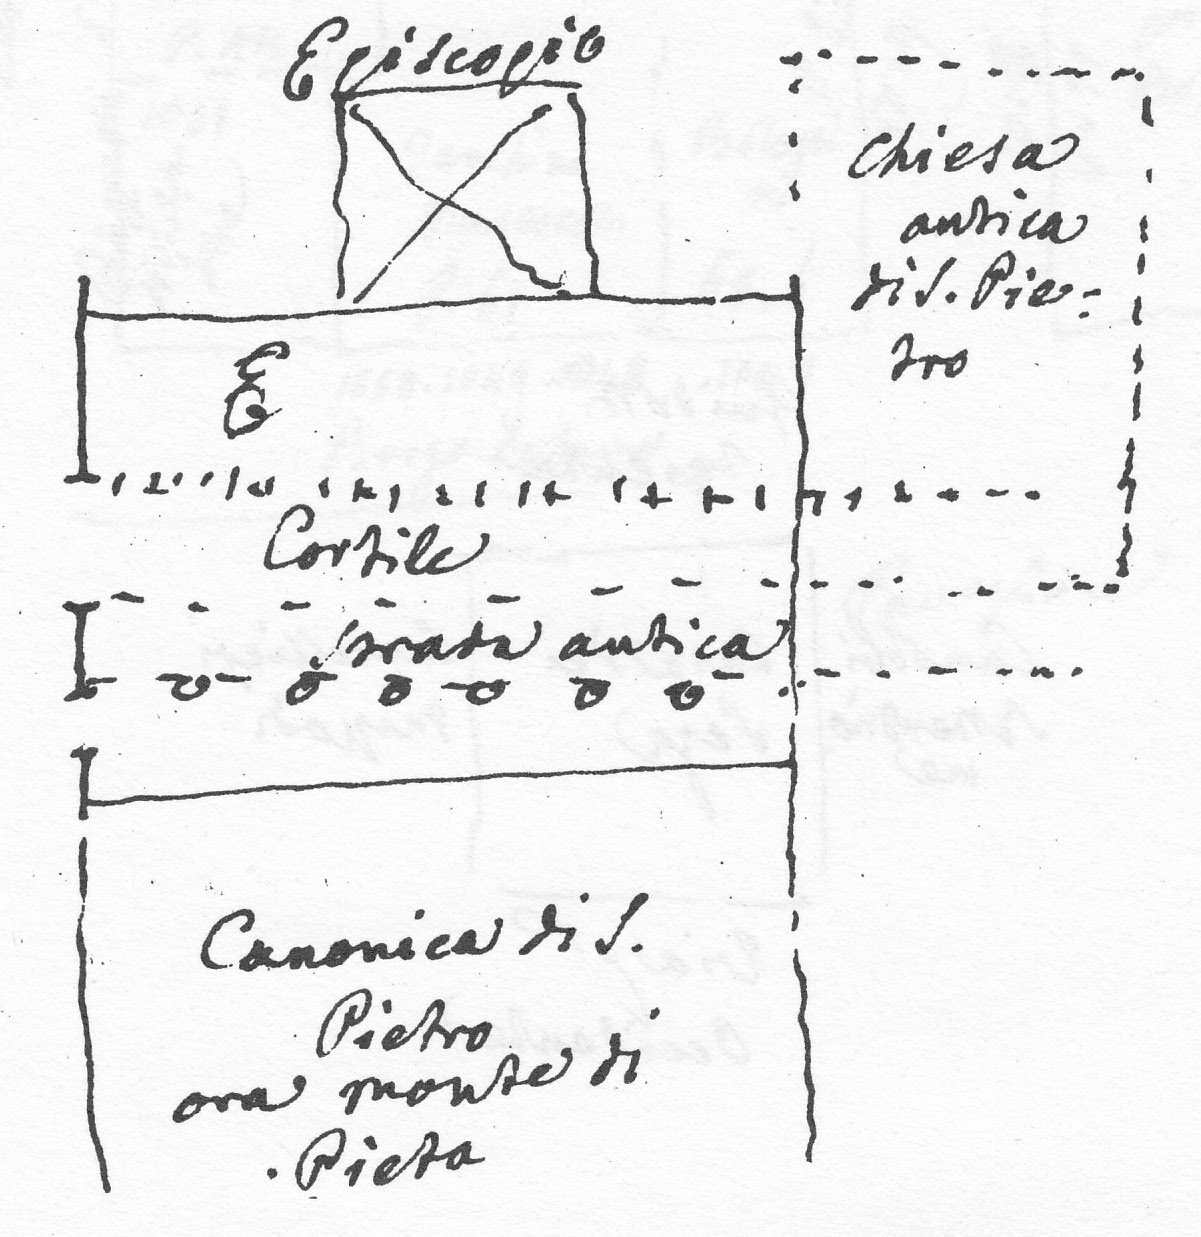 Episcopio
Chiesa
antica
di S. Pie-
tro
E
Cortile
strada antica
Canonica di S.
Pietro
ora monte di
Pieta